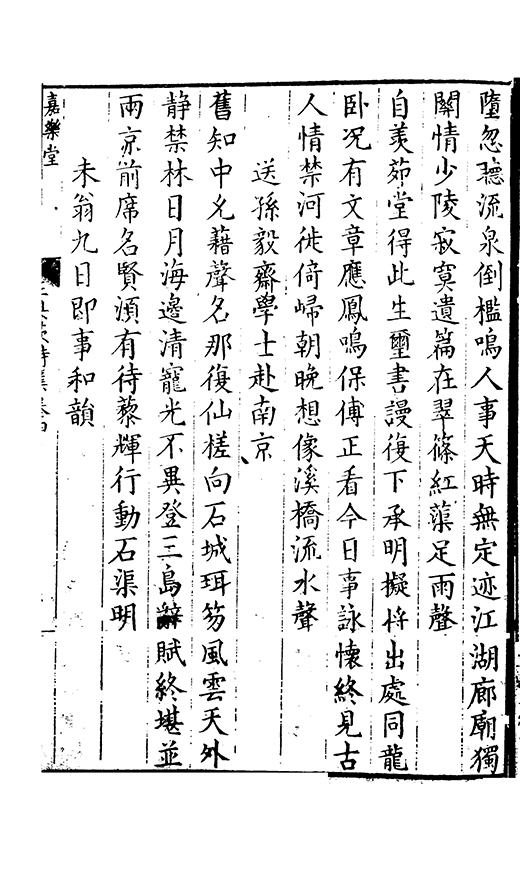 墮忽聽流泉倒檻鳴人事天時無定迹江湖廊廟獨
關情少陵寂寞遺篇在翠篠紅蕖足雨聲
自羙茆堂得此生璽書謾復下承明擬將出處同龍
卧况有文章應鳳鳴保傅正看今日事詠懷終見古
人情禁河徙倚歸朝晚想像溪橋流水聲
送孫毅齋學士赴南京
舊知中允藉聲名那復仙槎向石城珥笏風雲天外
静禁林日月海邊清寵光不異登三島辭賦終堪並
兩京前席名賢須有待藜輝行動石渠明
未翁九日即事和韻
嘉樂堂